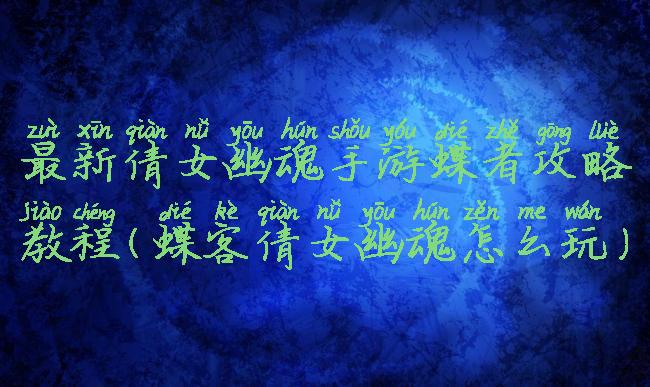 zuì xīn qiàn nǚ yōu hún shǒu yóu dié zhě gōng lüè
最新倩女幽魂手游蝶者攻略
jiào chéng dié kè qiàn nǚ yōu hún zěn me wán
教程(蝶客倩女幽魂怎么玩)